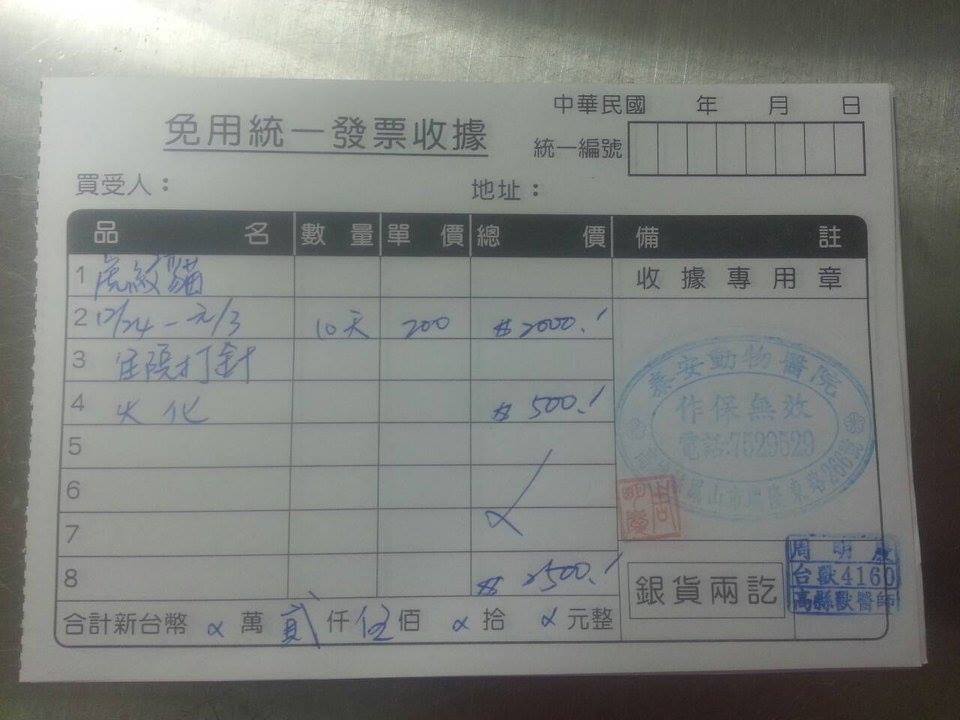 中華民國 年 月 日
免用統一發票收據
統一編號
買受人： 地址：
品名 數量 單價 總價 備註
1 虎紋貓
收據專用章
2 12/24 - 元/3 10天 200 $2000.!
3 住院打針
4 火化 $500.!
5
6
7
8 $2500.!
泰安動物醫院
作保無效
電話:7529529
銀貨兩訖
周明
台獸4160
高縣獸醫師
合計新台幣 α 萬 貳 仟 伍 佰 α 拾 α 元整